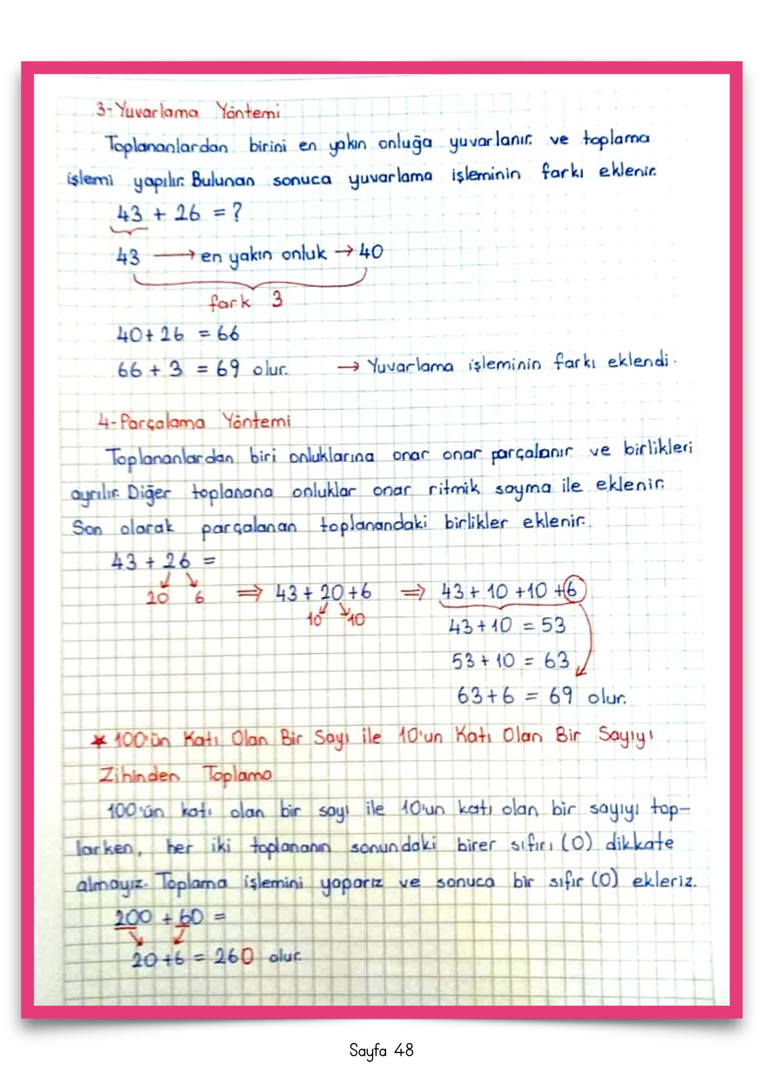 3-Yuvarlama Yöntemi
Toplananlardan birini en yakın onluğa yuvarlanır. ve toplama
işlemi yapılır. Bulunan sonuca yuvarlama işleminin farkı eklenir.
43 + 26 = ?
43 → en yakın onluk → 40
fark 3
40+26 = 66
66 + 3 = 69 olur. → Yuvarlama işleminin farkı eklendi.
4-Parçalama Yöntemi
Toplananlardan biri onluklarına onar onar parçalanır ve birlikleri
ayrılır. Diğer toplanana onluklar onar ritmik sayma ile eklenir.
Son olarak parçalanan toplanandaki birlikler eklenir.
43 + 26 =
20 6 ⇒ 43 + 20 +6 ⇒ 43 + 10 +10 +6
10 10
43+10 = 53
53 + 10 = 63
63+6 = 69 olur.
* 100'ün Katı Olan Bir Sayı ile 10'un Katı Olan Bir Sayıyı
Zihinden Toplama
100'ün katı olan bir sayı ile 10'un katı olan bir sayıyı top-
larken, her iki toplananın sonundaki birer sıfırı (0) dikkate
almayız. Toplama işlemini yaparız ve sonuca bir sıfır (0) ekleriz.
200 + 60 =
20 +6 = 260 olur.
Sayfa 48